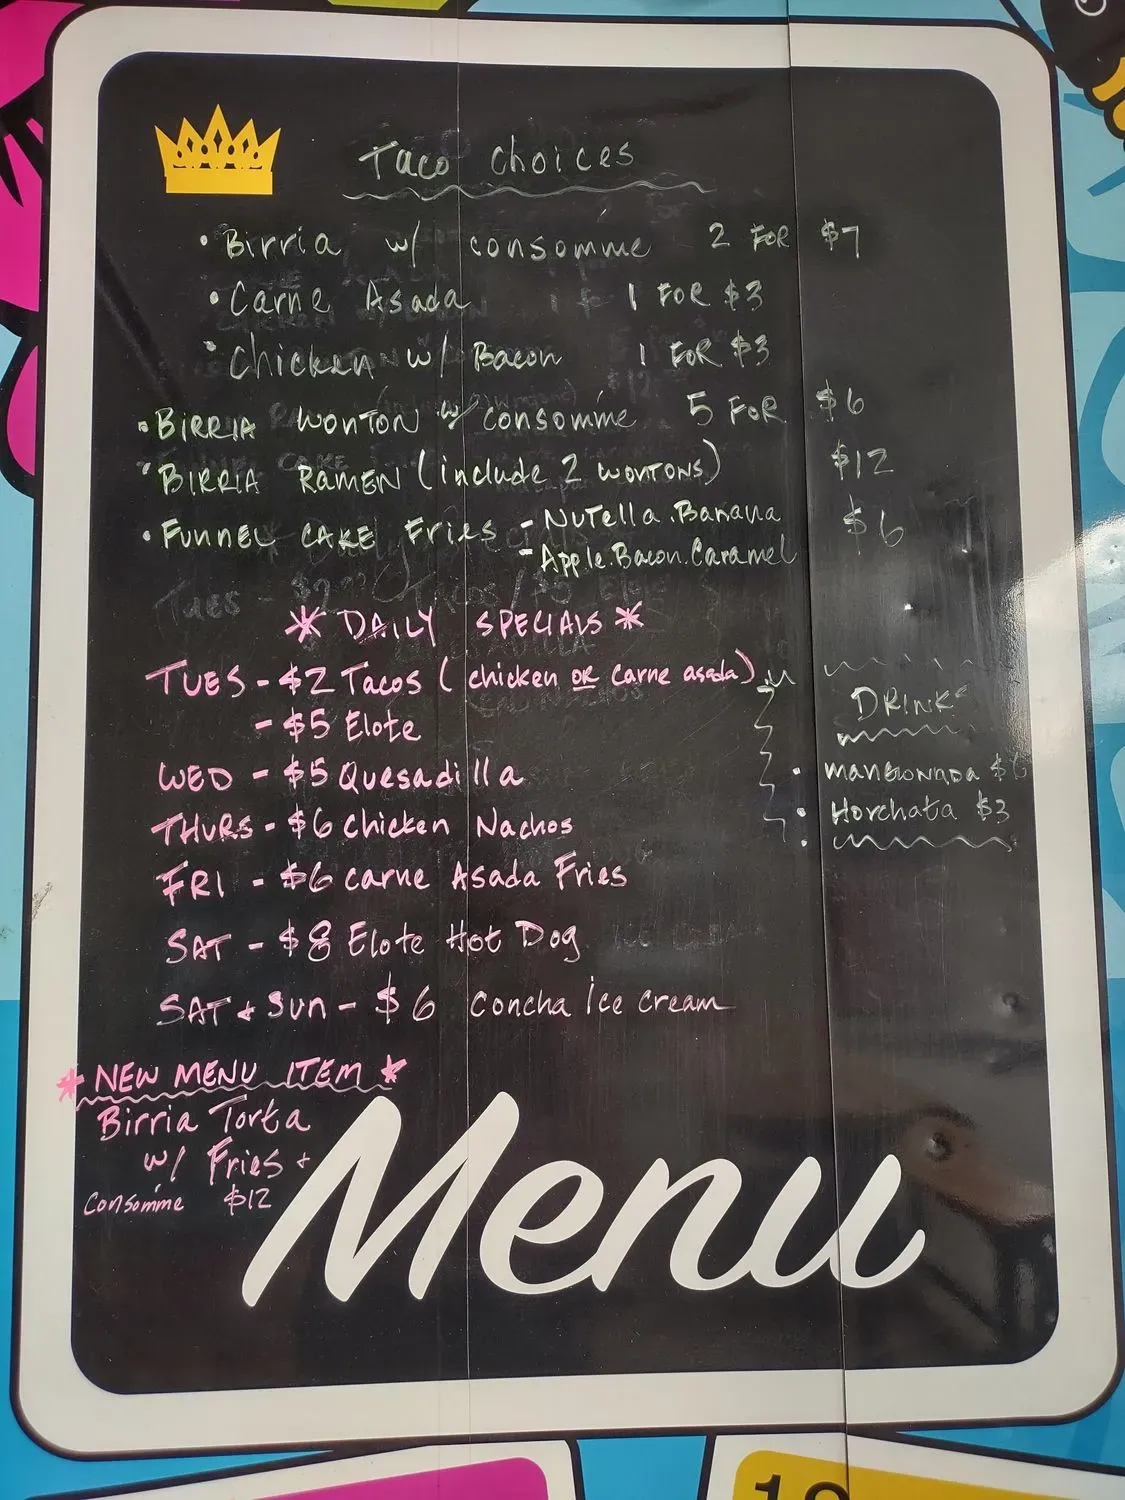 Taco Choices
• Birria w/ consomme 2 FOR $7
• Carne Asada 1 FOR $3
• Chicken w/ Bacon 1 FOR $3
• BIRRIA WONTON w/ consomme 5 FOR $6
• BIRRIA RAMEN (include 2 WONTONS) $12
• FUNNEL CAKE Fries - NUTella.Banana $6
- Apple.Bacon.Caramel
* DAILY SPECIALS *
TUES - $2 Tacos (chicken OR carne asada)
- $5 Elote
WED - $5 Quesadilla
THURS - $6 Chicken Nachos
FRI - $6 carne Asada Fries
SAT - $8 Elote Hot Dog
SAT + SUN - $6 Concha Ice Cream
DRINKS
• mangonada
• Horchata $3
* NEW MENU ITEM *
Birria Torta
w/ Fries +
Consomme $12
Menu